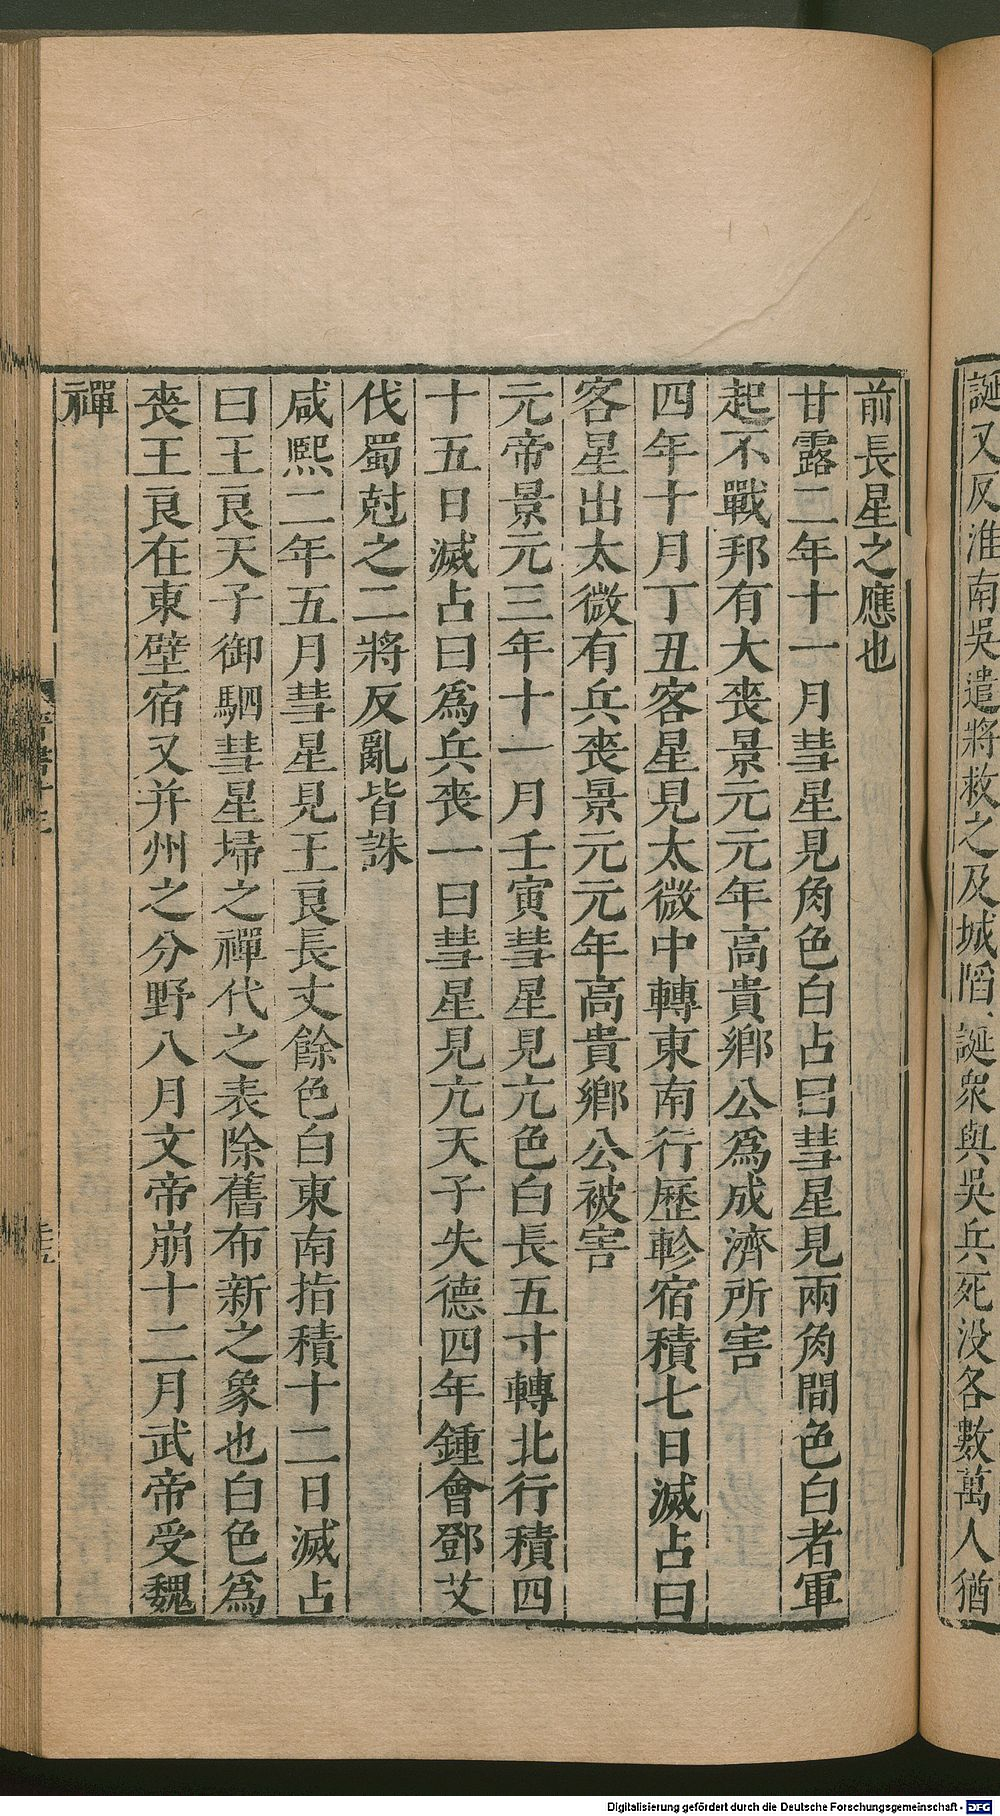 誕又反淮南吳遣將救之及城陷誕衆與吳兵死没各數萬人猶
前長星之應也
甘露二年十一月彗星見角色白占曰彗星見兩角間色白者軍
起不戰邦有大喪景元元年高貴鄉公爲成濟所害
四年十月丁丑客星見太微中轉東南行歷軫宿積七日滅占曰
客星出太微有兵喪景元元年高貴鄉公被害
元帝景元三年十一月壬寅彗星見亢色白長五寸轉北行積四
十五日滅占曰爲兵喪一曰彗星見亢天子失德四年鍾會鄧艾
伐蜀尅之二將反亂皆誅
咸熙二年五月彗星見王良長丈餘色白東南指積十二日滅占
曰王良天子御駟彗星埽之禪代之表除舊布新之象也白色爲
喪王良在東壁宿又并州之分野八月文帝崩十二月武帝受魏
禪
Digitalisierung gefördert durch die Deutsche Forschungsgemeinschaft - DFG